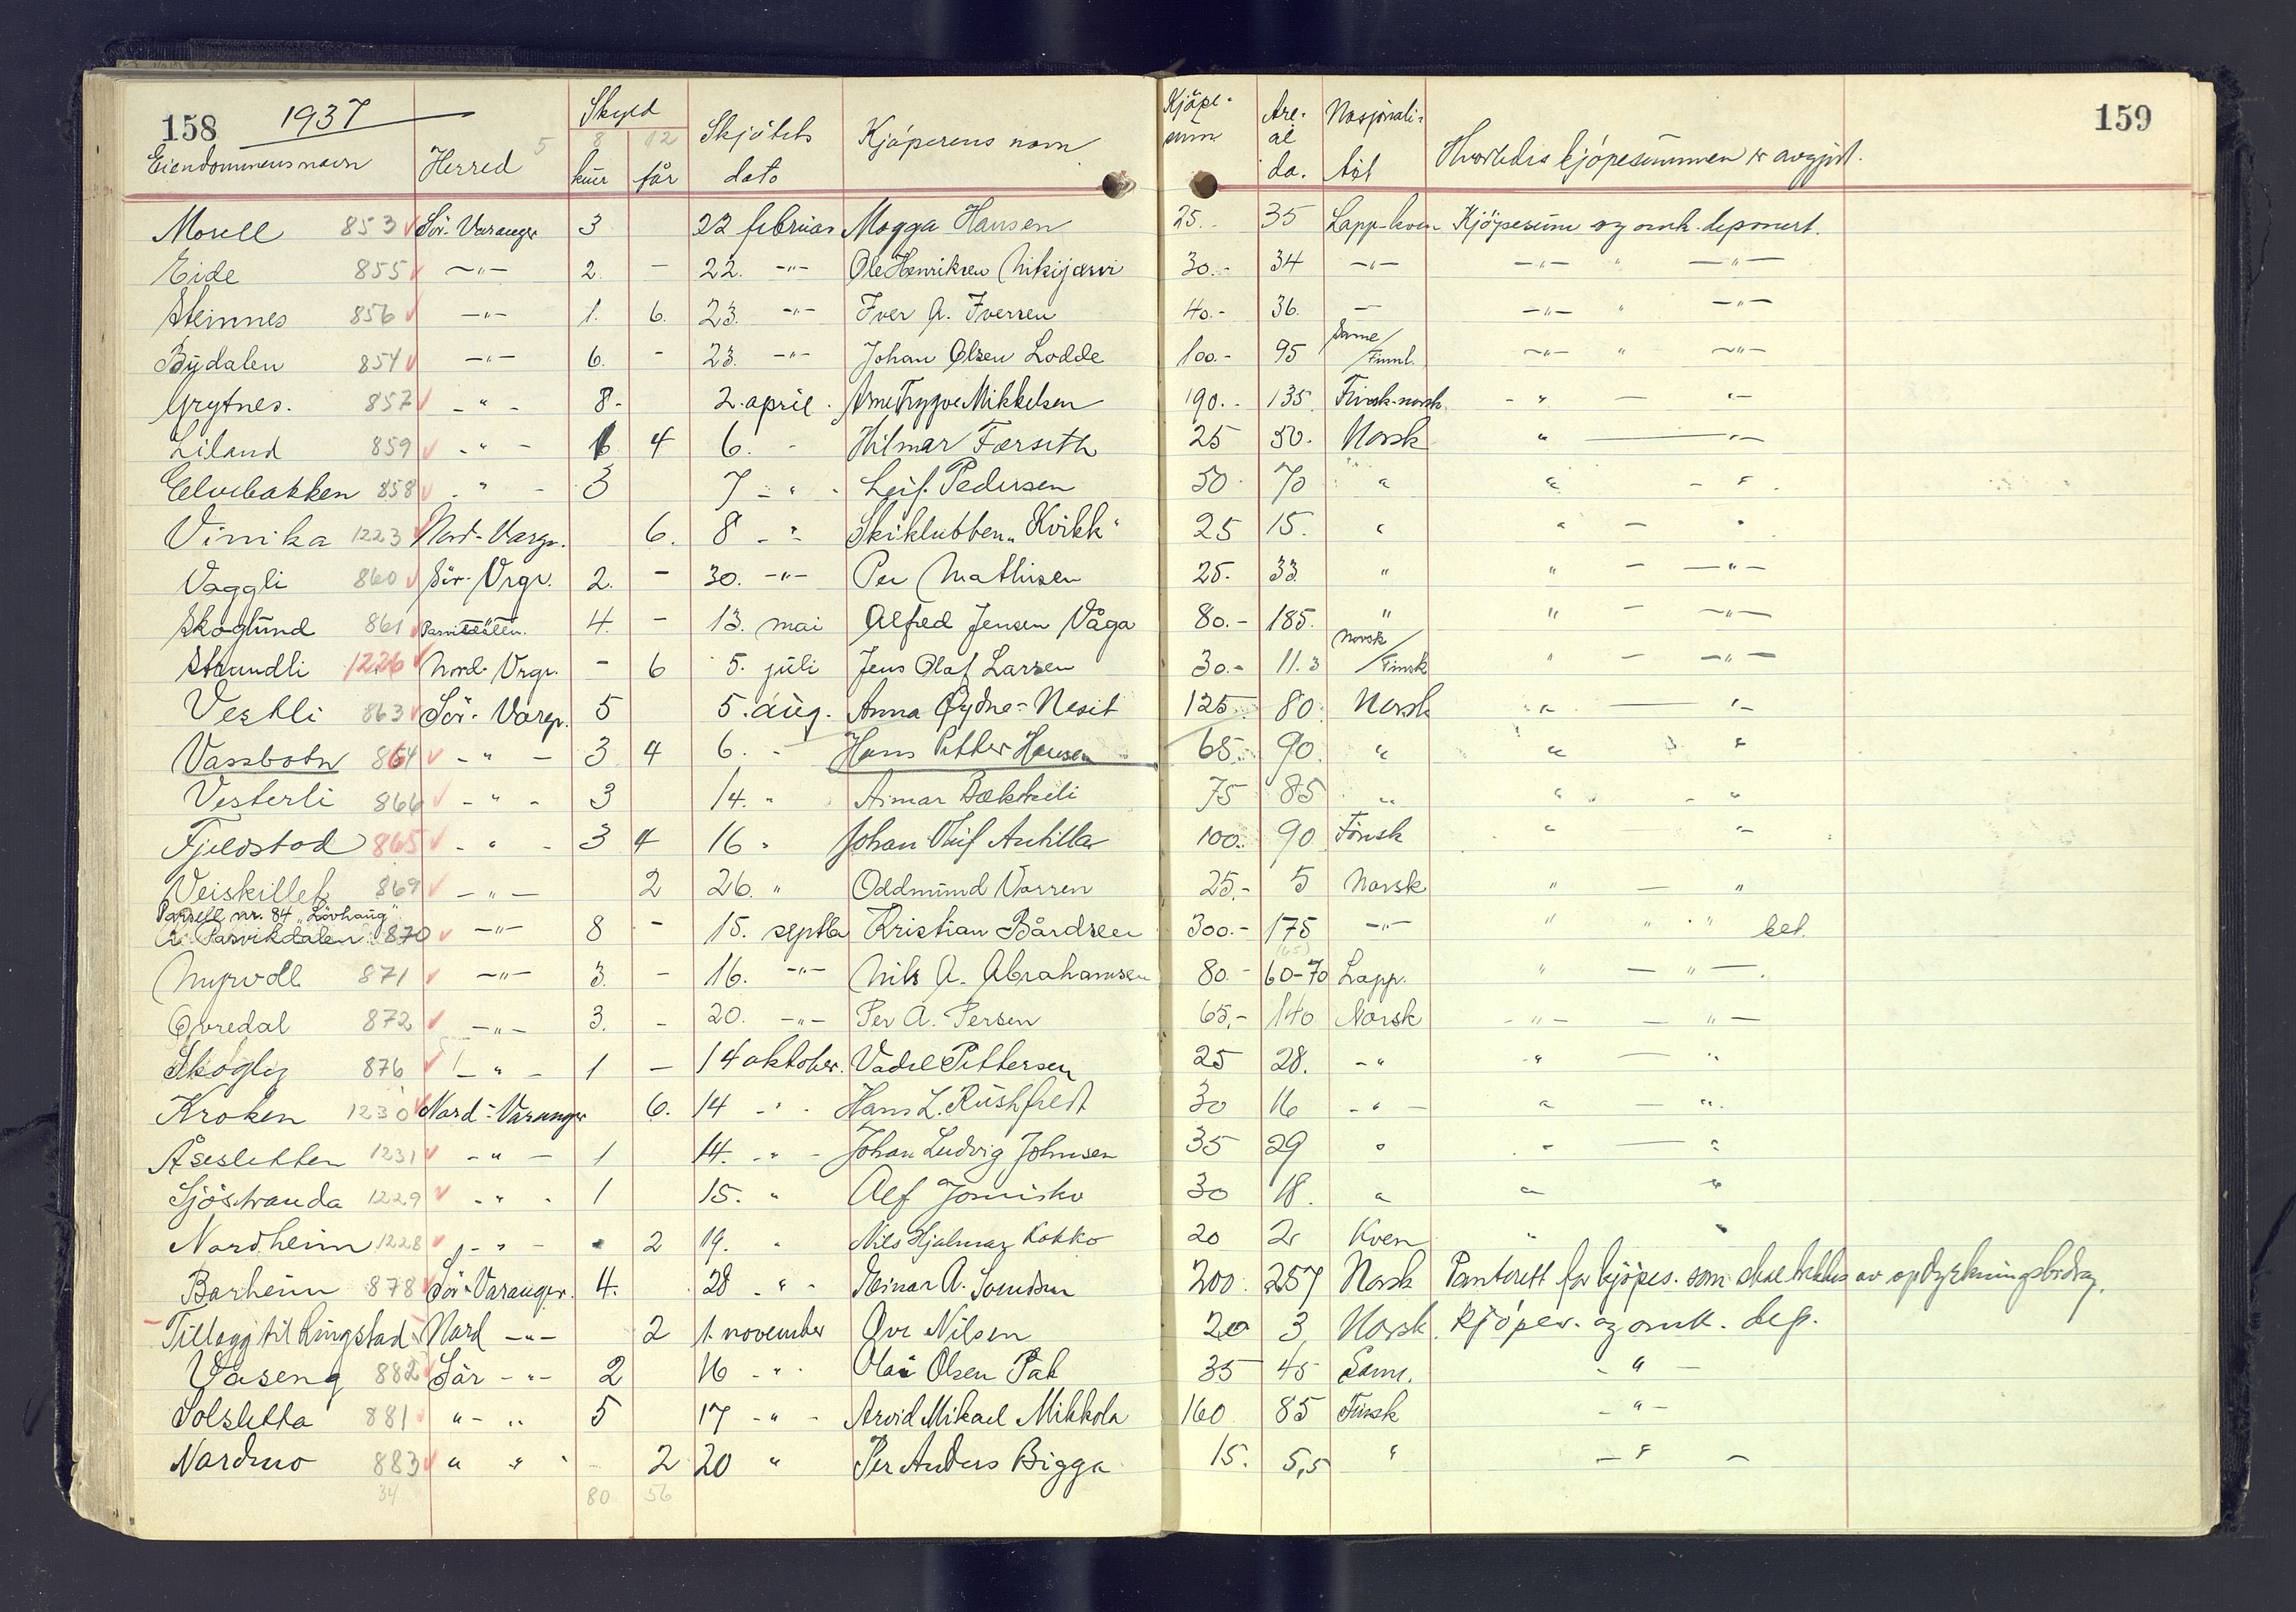 158 1937 Skyld Kjöpe- Are- Nasjonali- 159
Eiendommens navn Herred 5 8 12 Skjötets Kjöperens navn sum al tet Hvorledes kjöpesummen er avgjort.
kuer får dato da.
Morell 853 Sör-Varanger 3 22 februar Magga Hansen 25.- 35 Lapp-kven Kjöpesum og omk. deponert.
Eide 855 -"- 2. - 22. -"- Ole Henriksen Nikijærvi 30.- 34 -"- -"- " -"-
Steinnes 856 -"- 1. 6. 23. -"- Iver A. Iversen 40.- 36. - -"- " -"-
Bydalen 854 -"- 6. - 23. -"- Johan Olsen Lodde 100.- 95 Same/Finnl. -"- " -"-
Grytnes. 857 -"- 8- 2. april. Arne Trygve Mikkelsen 190.- 135. Finsk-norsk -"- - "-
Liland 859 -"- 6 4 6. - Hilmar Forseth 25 50. Norsk " - "-
Elvebakken 858 -"- 3 7 -"- Leif Pedersen 50 70 " " - "
Vinika 1223 Nord-Vargr. 6. 8 -"- Skiklubben "Kvikk" 25 15. " " - "
Vaggli 860 Sör-Vrgr. 2. - 30. -"- Per Mathisen 25. 33 " " - -"-
Skoglund 861 Pasvikdalen. 4. - 13. mai Alfred Jensen Våga 80.- 185. " " - -"-
Strandli 1226 Nord-Vrgr. - 6 5. juli Jens Olaf Larsen 30.- 11.3 Norsk/Finsk " - -"-
Vestli 863 Sör-Vargr. 5 5. aug. Anna Øydne-Nesit 125 80. Norsk " - "-
Vassbotn 864 -"- 3 4 6. - Hans Petter Hansen 65. 90. " " "
Vesterli 866 -"- 3 14. " Aimar Bækkeli 75 85 " " - "
Fjeldstad 865 -"- 3 4 16 " Johan Oluf Anhilla 100. 90 Finsk " "
Veiskillet 869 -"- 2 26. " Oddmund Varren 25.- 5 Norsk " - "
Parsell nr. 84 "Lövhaug"
i Pasvikdalen 870 -"- 8 - 15. septbr Kristian Bårdsen 300.- 175 -"- " " " bet.
Myrvoll 871 -"- 3. - 16. -"- Nils A. Abrahamsen 80.- 60-70 (65) Lapp. " - " -.
Øvredal 872 -"- 3. - 20. -"- Per A. Persen 65,- 140 Norsk -"- - " -
Skogly 876 -"- 1 - 14 oktober. Vadel Pettersen 25 28. -" -" - "
Kroken 1230 Nord-Varanger 6. 14 -"- Hans L. Rushfeldt 30 16 -"- " - "
Åsesletten 1231 -"- 1 14. -"- Johan Ludvig Johnsen 35 29 " " - "
Sjöstranda 1229 -"- 1 15. " Alf Jomisko 30 18. " " "
Nordheim 1228 -"- 2 19. " Nils Hjalmar Kokko 20 2 Kven " "
Barheim 878 Sör-Varanger. 4. 28 -"- Einar A. Svendsen 200. 257 Norsk Panterett for kjöpes. som skal trekkes av opdyrkningsbidrag.
Tillegg til Lingstad Nord -"- 2 1. november Ove Nilsen 20 3 Norsk Kjöpes. og omk. dep.
Vaseng 882 Sör -"- 2 16 -"- Olai Olsen Pak 35 45 Same. -"-
Solsletta 881 "- " 5 17 -"- Arvid Mikael Mikkola 160 85 Finsk -"-
Nordmo 883 " " 2 20 " Per Anders Bigga 15. 5,5 " -"-
34 80 56